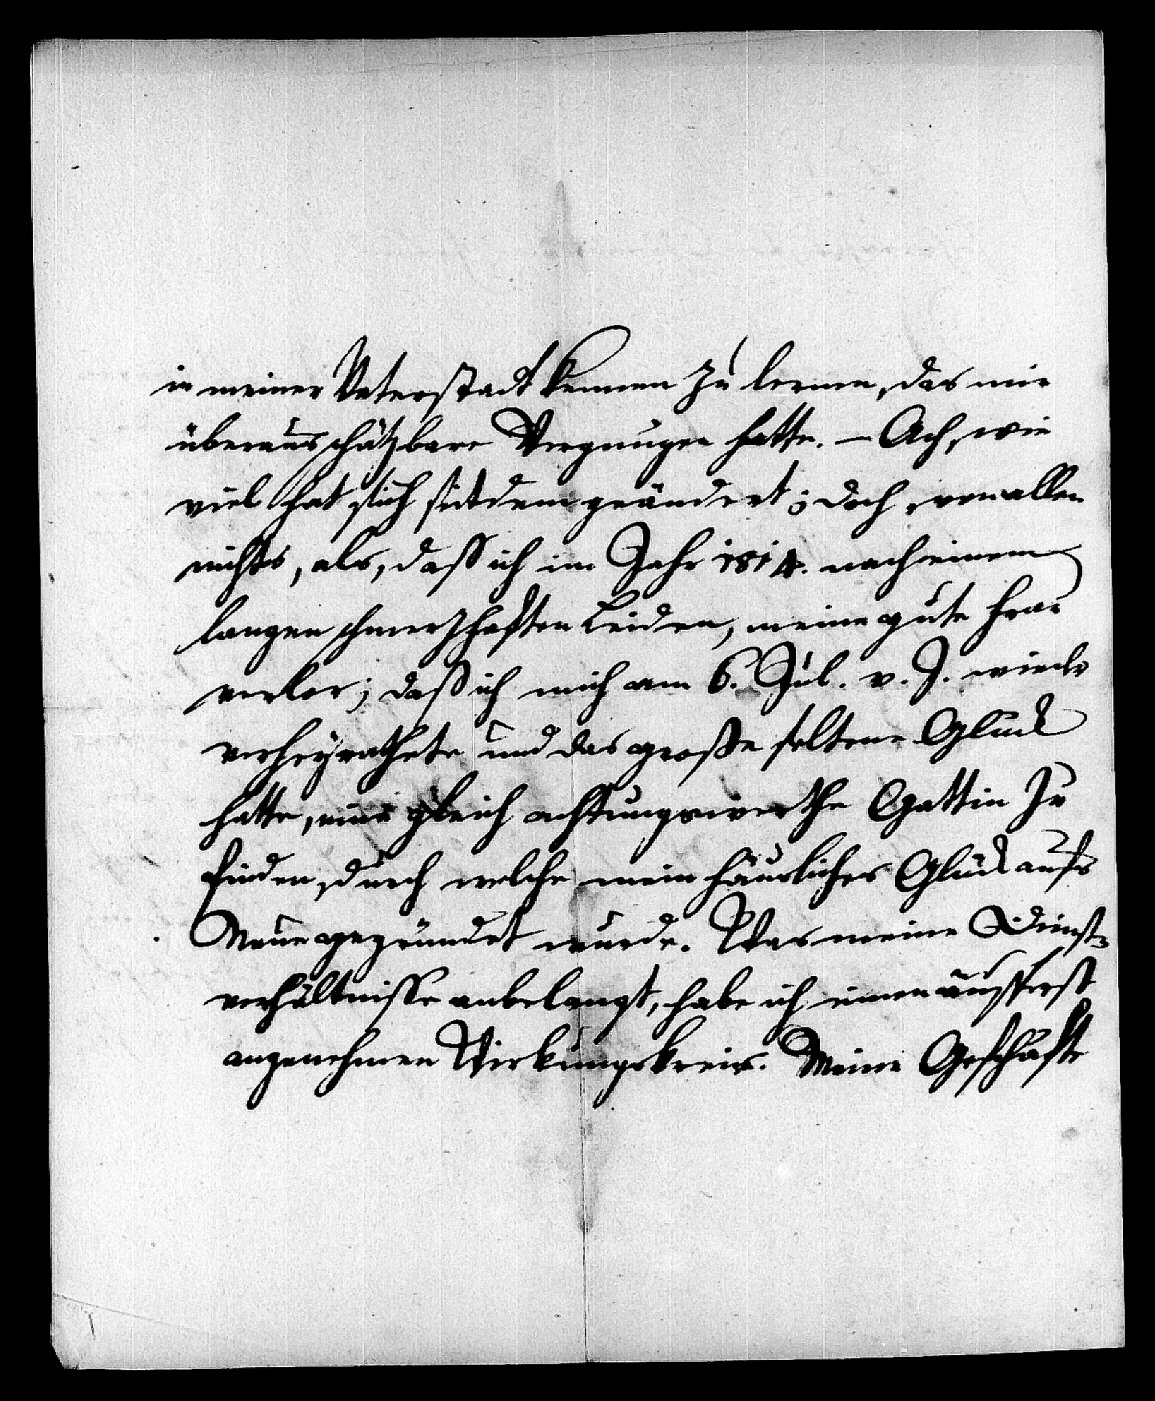 in meiner Vaterstadt kennen zu lernen, das mir
überaus schätzbare Vergnugen hatte. – Ach, wie
viel hat sich seitdem geändert; doch, von allen
nichts, als, daß ich im Jahr 1814. nach einem
langen schmerzhaften Leiden, meine gute Frau
verlor; daß ich mich am 6. Jul. v. J. wieder
verheyrathete und das große seltene Glück
hatte, eine gleich achtungswerthe Gattin zu
finden, durch welche mein häusliches Glück aufs
Neue gegründet wurde. Was meine Dienst-
verhältnisse anbelangt, habe ich einen äusserst
angenehmen Wirkungskreis. Meine Geschäfte